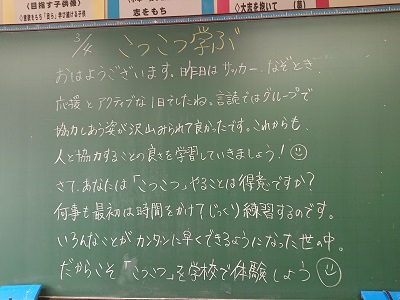 (目指す子供像)
◇意欲をもち「自ら」学び鍛える子供
志をもち
◇大志を抱いて
3/4
こつこつ学ぶ
おはようございます。昨日はサッカー、なぞとき、
応援とアクティブな1日でしたね。言読ではグループで
協力しあう姿が沢山みられて良かったです。これからも、
人と協力することの良さを学習していきましょう!
さて、あなたは「こつこつ」やることは得意ですか?
何事も最初は時間をかけてじっくり練習するのです。
いろんなことがカンタンに早くできるようになった世の中。
だからこそ「こつこつ」を学校で体験しよう